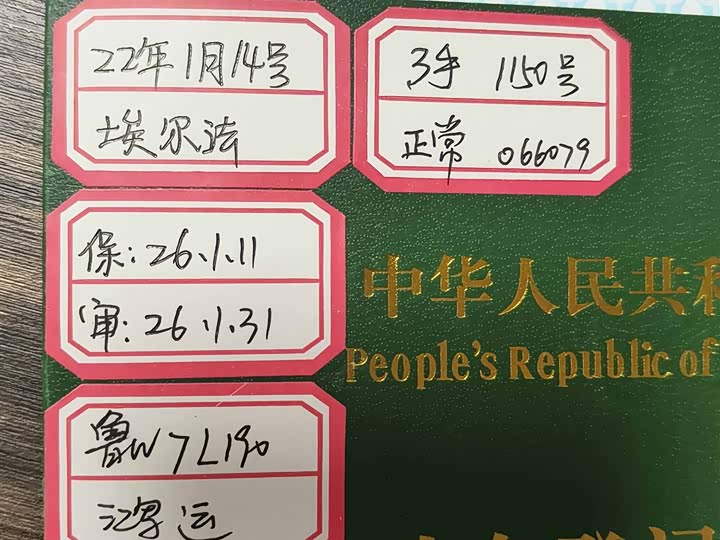 22年1月14号
埃尔法
3手 1150号
正常 066079
保:26.1.11
审:26.1.31
鲁W7L190
鸿运
中华人民共和
People's Republic of